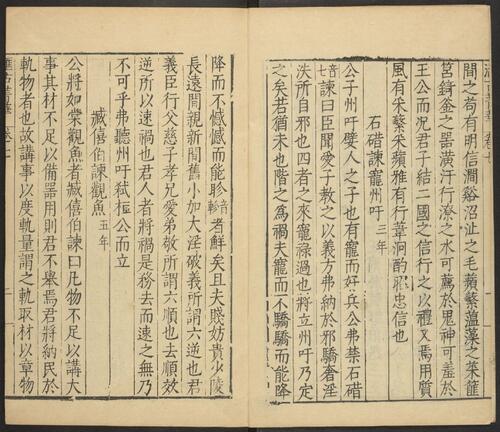 間之苟有明信澗谿沼沚之毛蘋蘩薀藻之菜筐
筥錡釜之器潢汙行潦之水可薦於鬼神可羞於
王公而况君子結二國之信行之以禮又焉用質
風有采蘩采蘋雅有行葦泂酌昭忠信也
石碏諫寵州吁 三年
公子州吁嬖人之子也有寵而好兵公弗禁石碏
諫曰臣聞愛子教之以義方弗納於邪驕奢淫
泆所自邪也四者之來寵祿過也將立州吁乃定
之矣若猶未也階之為禍夫寵而不驕驕而能降
降而不憾憾而能眕音軫者鮮矣且夫賤妨貴少陵
長遠間親新間舊小加大淫破義所謂六逆也君
義臣行父慈子孝兄愛弟敬所謂六順也去順效
逆所以速禍也君人者將禍是務去而速之無乃
不可乎弗聽州吁弑桓公而立
臧僖伯諫觀魚 五年
公將如棠觀魚者臧僖伯諫曰凡物不足以講大
事其材不足以備器用則君不舉焉君將納民於
軌物者也故講事以度軌量謂之軌取材以章物